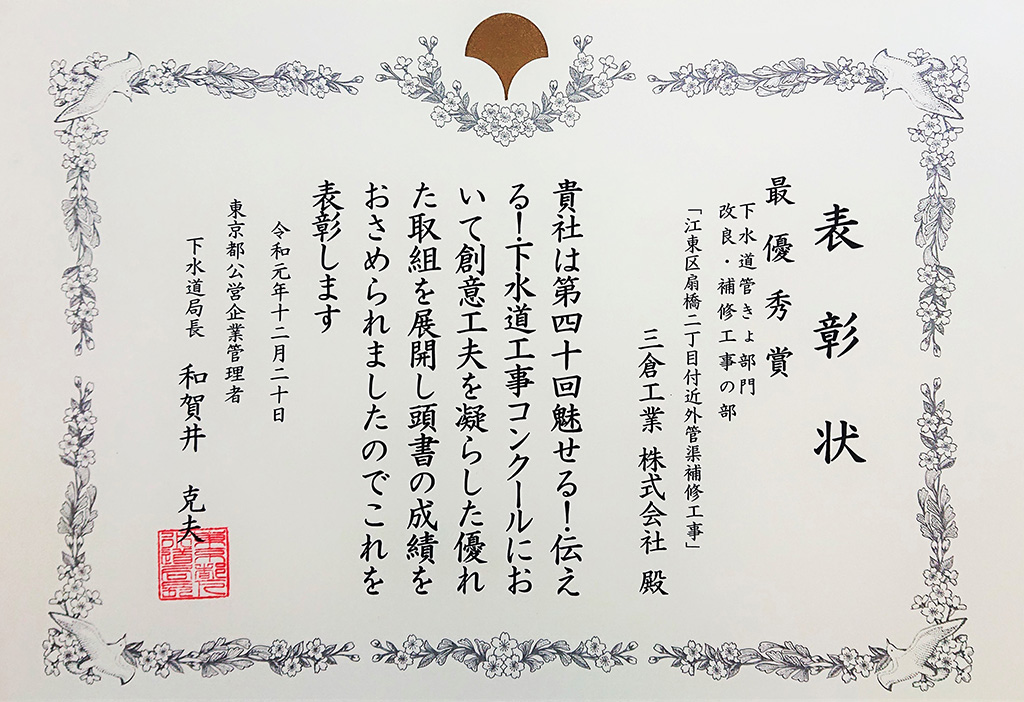 表彰状
最優秀賞
下水道管きょ部門
改良・補修工事の部
「江東区扇橋二丁目付近外管渠補修工事」
三倉工業 株式会社 殿
貴社は第四十回魅せる!伝え
る!下水道工事コンクールにお
いて創意工夫を凝らした優れ
た取組を展開し頭書の成績を
おさめられましたのでこれを
表彰します
令和元年十二月二十日
東京都公営企業管理者
下水道局長 和賀井 克夫